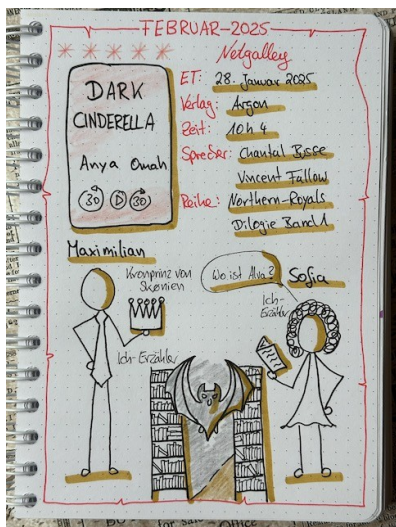 FEBRUAR-2025
Netgalley
DARK
CINDERELLA
Anya Omah
30
30
ET: 28. Januar 2025
Verlag: Argon
Zeit: 10h 4
Sprecher: Chantal Busse
Vincent Fallow
Reihe: Northern-Royals
Dilogie Band 1
Maximilian
Kronprinz von
Skonien
Ich-Erzähler
Wo ist Alva?
Sofia
Ich-
Erzähler
for sale
Office